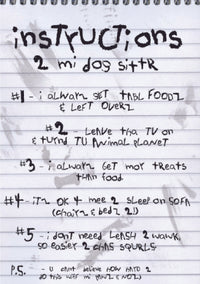 instructions
2 mi dog sittr
#1 - i alwayz get tabl foodz
& left overz
#2 - leave tha TV on
& turnd TU Animal Planet
#3 - i alwayz get mor treats
than food
#4 - itz ok 4 mee 2 sleep on sofa
(chairz & bedz 2!)
#5 - i dont need leash 2 wawk
so easier 2 chas squrls
P.S. - U cant believe how hard 2
do this wif mi pawz (& no